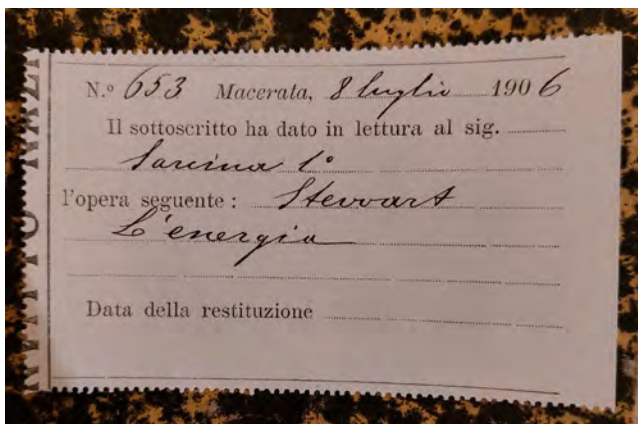 N.º 653 Macerata, 8 luglio 1906
Il sottoscritto ha dato in lettura al sig.
Sarcina 1º
l'opera seguente: Stewart
L'energia
Data della restituzione